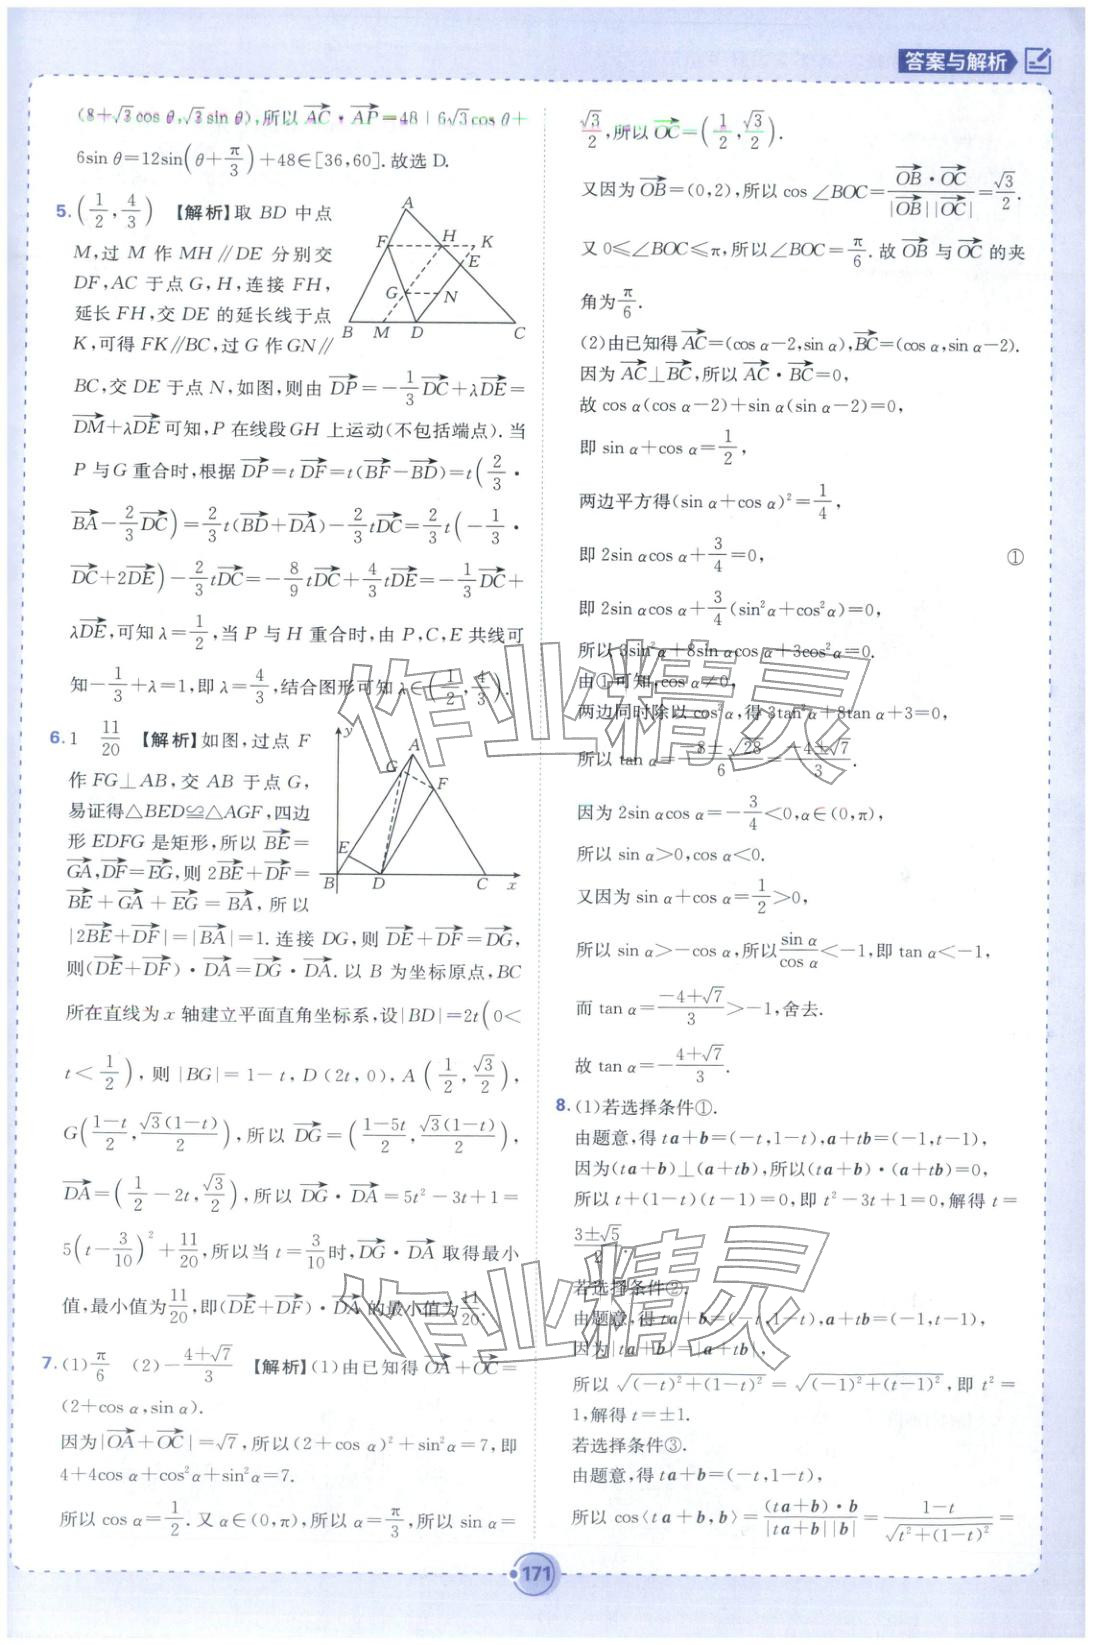 答案与解析
(8+√3cos θ,√3sin θ),所以 AC·AP=48+6√3cos θ+
6sin θ=12sin(θ+π/3)+48∈[36,60].故选 D.
5.(1/2,4/3) 【解析】取 BD 中点
M,过 M 作 MH∥DE 分别交
DF,AC 于点 G,H,连接 FH,
延长 FH,交 DE 的延长线于点
K,可得 FK∥BC,过 G 作 GN∥
A
F
H
K
E
G
N
B
M
D
C
BC,交 DE 于点 N,如图,则由 DP=-1/3 DC+λDE=
DM+λDE 可知,P 在线段 GH 上运动(不包括端点).当
P 与 G 重合时,根据 DP=t DF=t(BF-BD)=t(2/3·
BA-2/3 DC)=2/3 t(BD+DA)-2/3 tDC=2/3 t(-1/3·
DC+2DE)-2/3 tDC=-8/9 tDC+4/3 tDE=-1/3 DC+
λDE,可知 λ=1/2,当 P 与 H 重合时,由 P,C,E 共线可
知-1/3+λ=1,即 λ=4/3,结合图形可知 λ∈(1/2,4/3).
6.1 11/20 【解析】如图,过点 F
作 FG⊥AB,交 AB 于点 G,
易证得△BED≌△AGF,四边
形 EDFG 是矩形,所以 BE=
GA,DF=EG,则 2BE+DF=
BE+GA+EG=BA,所以
y
A
G
F
E
B
D
C
x
|2BE+DF|=|BA|=1.连接 DG,则 DE+DF=DG,
则(DE+DF)·DA=DG·DA.以 B 为坐标原点,BC
所在直线为 x 轴建立平面直角坐标系,设|BD|=2t(0<
t<1/2),则 |BG|=1-t,D(2t,0),A(1/2,√3/2),
G((1-t)/2,√3(1-t)/2),所以 DG=((1-5t)/2,√3(1-t)/2),
DA=(1/2-2t,√3/2),所以 DG·DA=5t²-3t+1=
5(t-3/10)²+11/20,所以当 t=3/10时,DG·DA 取得最小
值,最小值为11/20,即(DE+DF)·DA 的最小值为11/20.
7.(1)π/6 (2)-(4+√7)/3 【解析】(1)由已知得 OA+OC=
(2+cos α,sin α).
因为|OA+OC|=√7,所以(2+cos α)²+sin²α=7,即
4+4cos α+cos²α+sin²α=7.
所以 cos α=1/2.又 α∈(0,π),所以 α=π/3,所以 sin α=
√3/2,所以 OC=(1/2,√3/2).
又因为 OB=(0,2),所以 cos∠BOC=OB·OC/|OB||OC|=√3/2.
又 0≤∠BOC≤π,所以∠BOC=π/6.故 OB 与 OC 的夹
角为π/6.
(2)由已知得 AC=(cos α-2,sin α),BC=(cos α,sin α-2).
因为 AC⊥BC,所以 AC·BC=0,
故 cos α(cos α-2)+sin α(sin α-2)=0,
即 sin α+cos α=1/2,
两边平方得(sin α+cos α)²=1/4,
即 2sin αcos α+3/4=0, ①
即 2sin αcos α+3/4(sin²α+cos²α)=0,
所以 3sin²α+8sin αcos α+3cos²α=0.
由①可知,cos α≠0,
两边同时除以 cos²α,得 3tan²α+8tan α+3=0,
所以 tan α=(-8±√28)/6=(-4±√7)/3.
因为 2sin αcos α=-3/4<0,α∈(0,π),
所以 sin α>0,cos α<0.
又因为 sin α+cos α=1/2>0,
所以 sin α>-cos α,所以sin α/cos α<-1,即 tan α<-1,
而 tan α=(-4+√7)/3>-1,舍去.
故 tan α=-(4+√7)/3.
8.(1)若选择条件①.
由题意,得 ta+b=(-t,1-t),a+tb=(-1,t-1),
因为(ta+b)⊥(a+tb),所以(ta+b)·(a+tb)=0,
所以 t+(1-t)(t-1)=0,即 t²-3t+1=0,解得 t=
(3±√5)/2.
若选择条件②.
由题意,得 ta+b=(-t,1-t),a+tb=(-1,t-1),
因为|ta+b|=|a+tb|,
所以 √((-t)²+(1-t)²)=√((-1)²+(t-1)²),即 t²=
1,解得 t=±1.
若选择条件③.
由题意,得 ta+b=(-t,1-t),
所以 cos⟨ta+b,b⟩=(ta+b)·b/|ta+b||b|=(1-t)/√(t²+(1-t)²)=
作业精灵
作业精灵
171